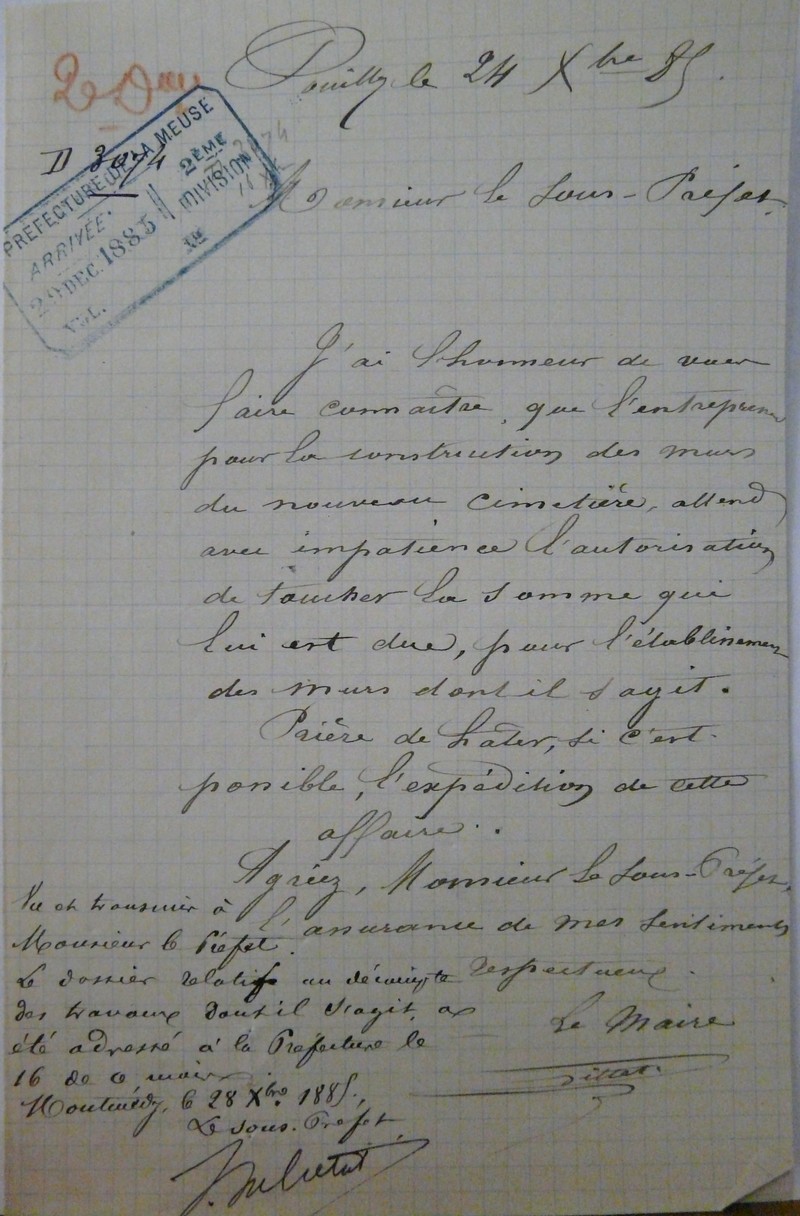 2e Don
Pouilly le 24 Xbre 85.
D 3074
PRÉFECTURE DE LA MEUSE
ARRIVÉE.
29 DEC. 1885
2ÈME
DIVISION
Monsieur le Sous-Préfet,
J'ai l'honneur de vous
faire connaître, que l'entrepreneur
pour la construction des murs
du nouveau cimetière, attend
avec impatience l'autorisation
de toucher la somme qui
lui est due, pour l'établissement
des murs dont il s'agit.
Prière de hâter, si c'est
possible, l'expédition de cette
affaire.
Agréez, Monsieur le Sous-Préfet,
l'assurance de mes sentiments
respectueux.
Le Maire
Vu et transmis à
Monsieur le Préfet.
Le dossier relatif au décompte
des travaux dont il s'agit, a
été adressé à la Préfecture le
16 de ce mois.
Montmédy, le 28 Xbre 1885,
Le Sous-Préfet,